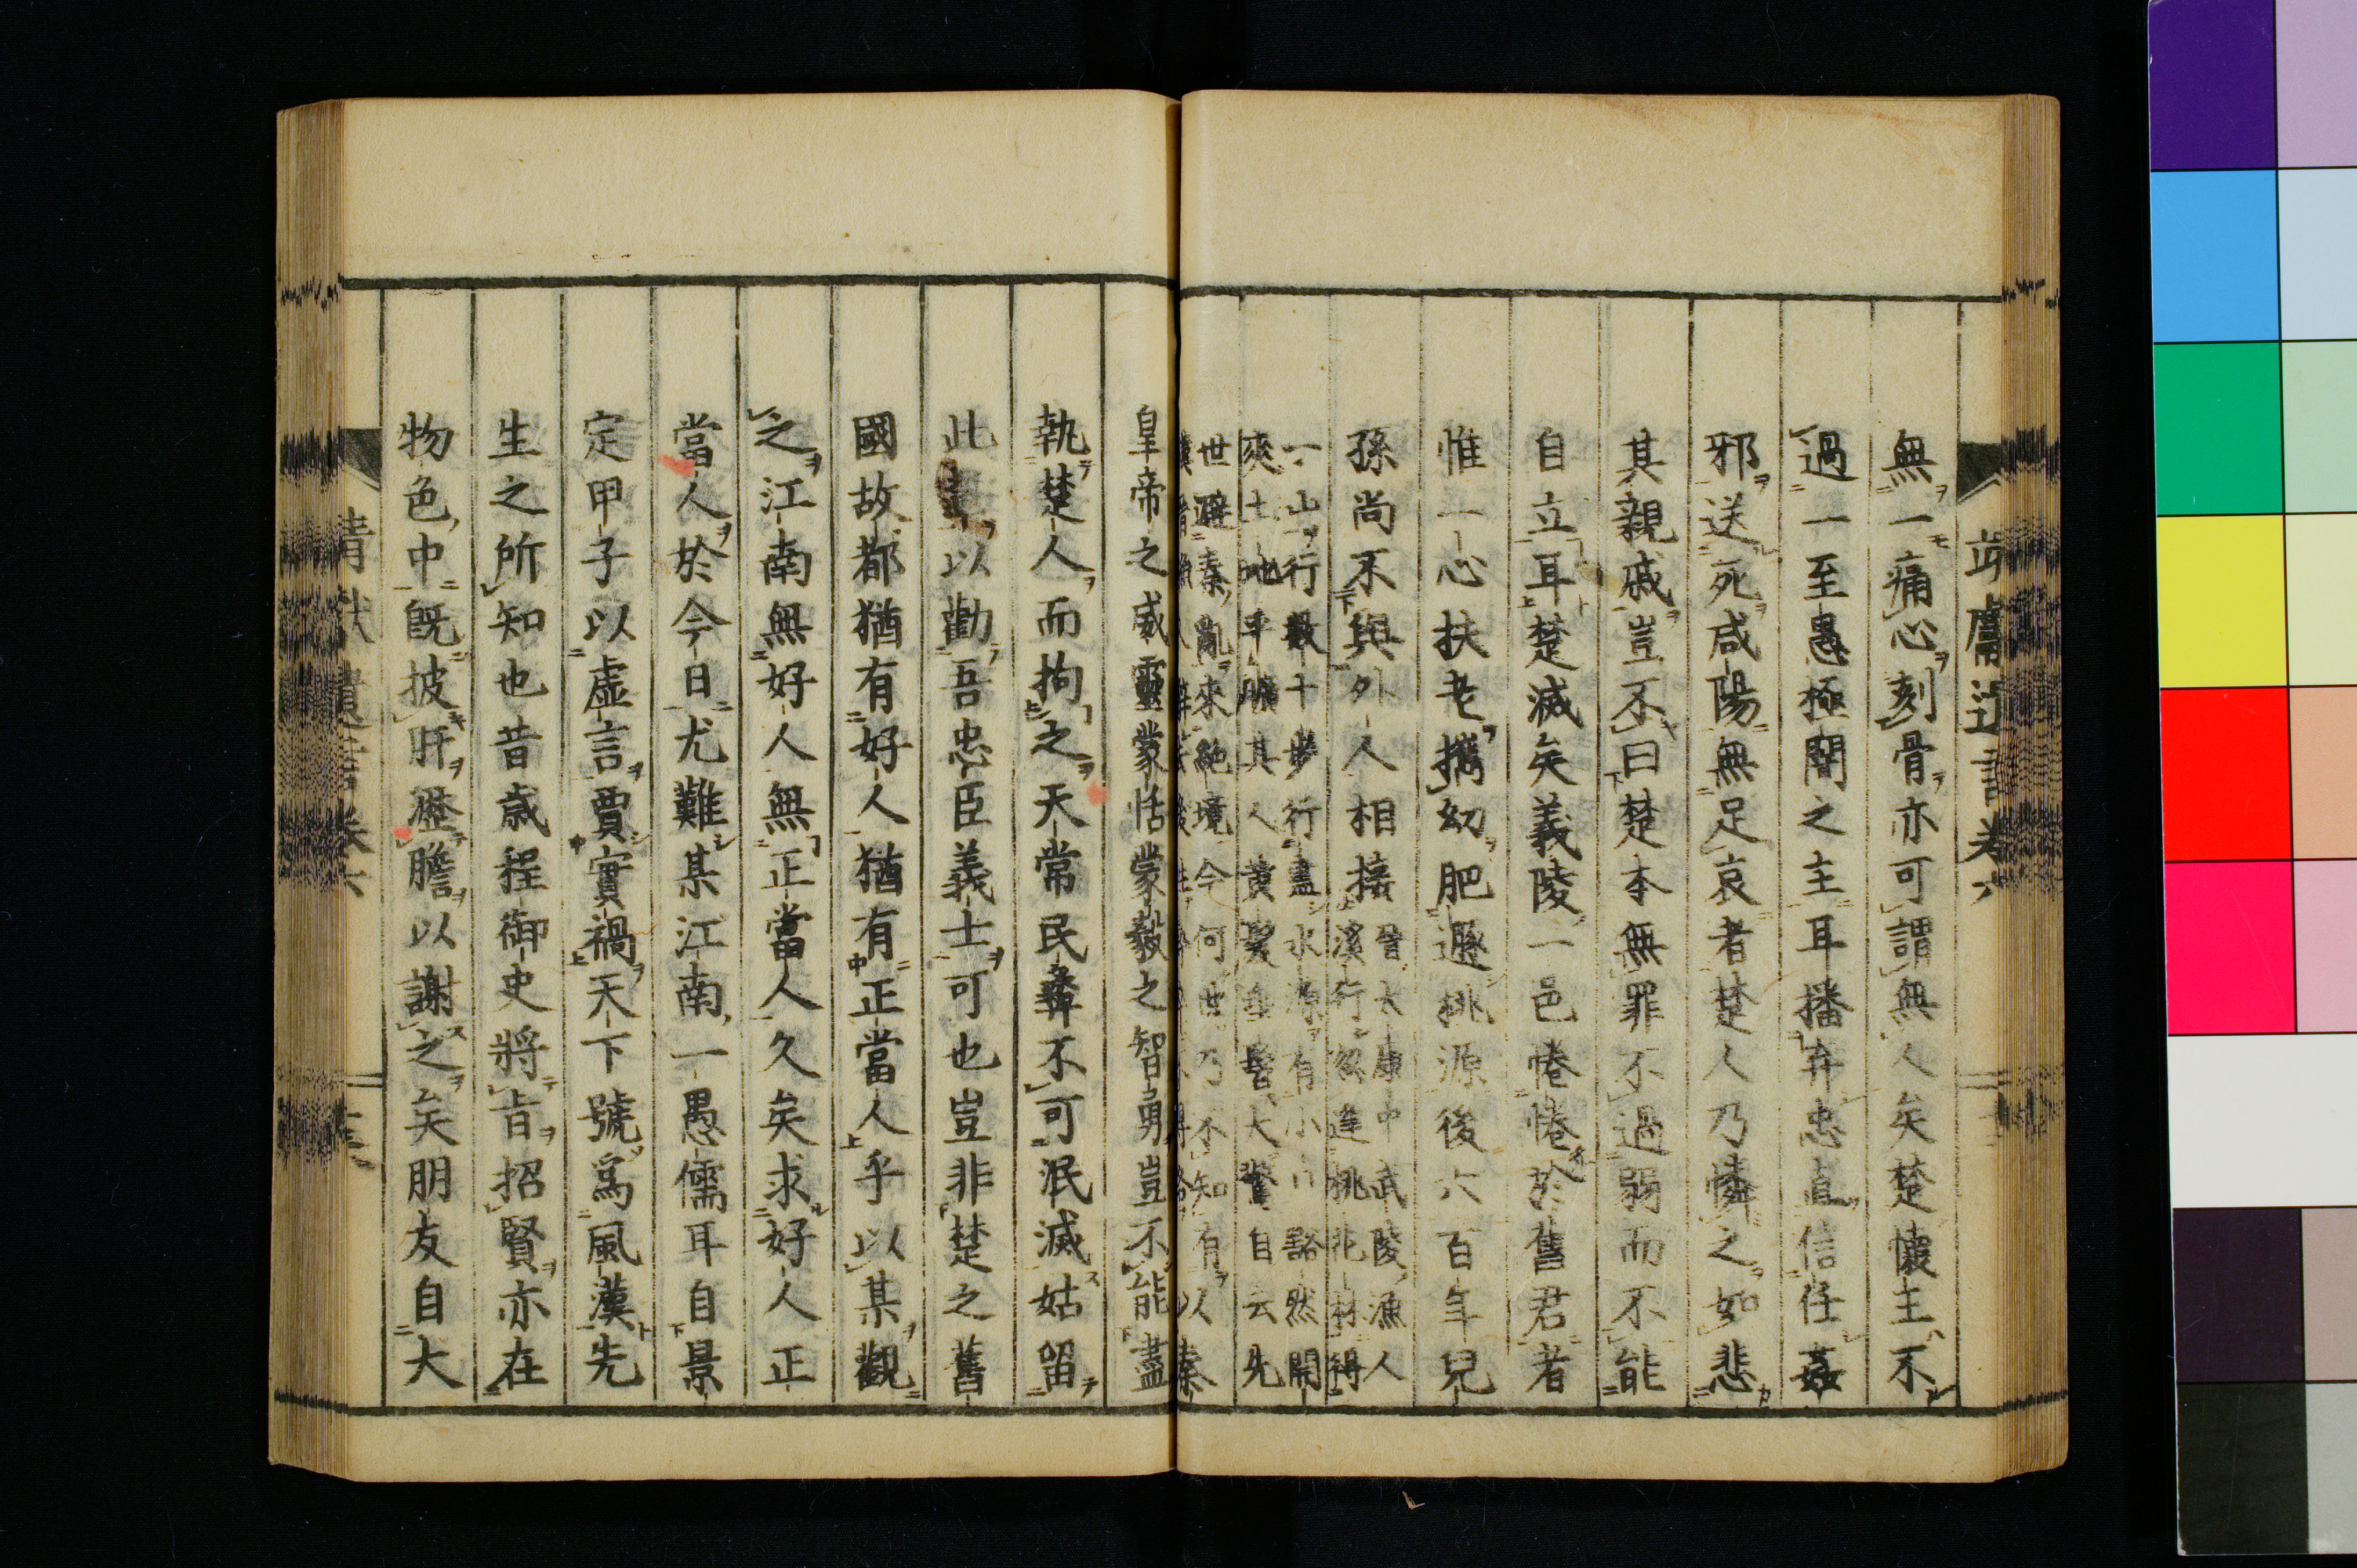 無一痛心刻骨亦可謂無人矣楚懷王不
過一至愚極闇之主耳播弃忠直信任姦
邪送死咸陽無足哀者楚人乃憐之如悲
其親戚豈不曰楚本無罪不過弱而不能
自立耳楚滅矣義陵一邑惓惓於舊君者
惟一心扶老攜幼肥遯桃源後六百年兒
孫尚不與外人相接
晉太康中武陵漁人
溪行忽逢桃花林得
一山行數十步行盡水源有小口豁然開
爽土地平曠其人黃髮垂髫大驚自云先
世避秦亂來絕境今何世乃不知有以秦
皇帝之威靈蒙恬蒙毅之智勇豈不能盡
執楚人而拘之天常民彝不可泯滅姑留
此以勸吾忠臣義士可也豈非楚之舊
國故都猶有好人猶有正當人乎以某觀
之江南無好人無正當人久矣求好人正
當人於今日尤難某江南一愚儒耳自景
定甲子以虛言賈實禍天下號爲風漢先
生之所知也昔歲程御史將旨招賢亦在
物色中旣披肝瀝膽以謝之矣朋友自大